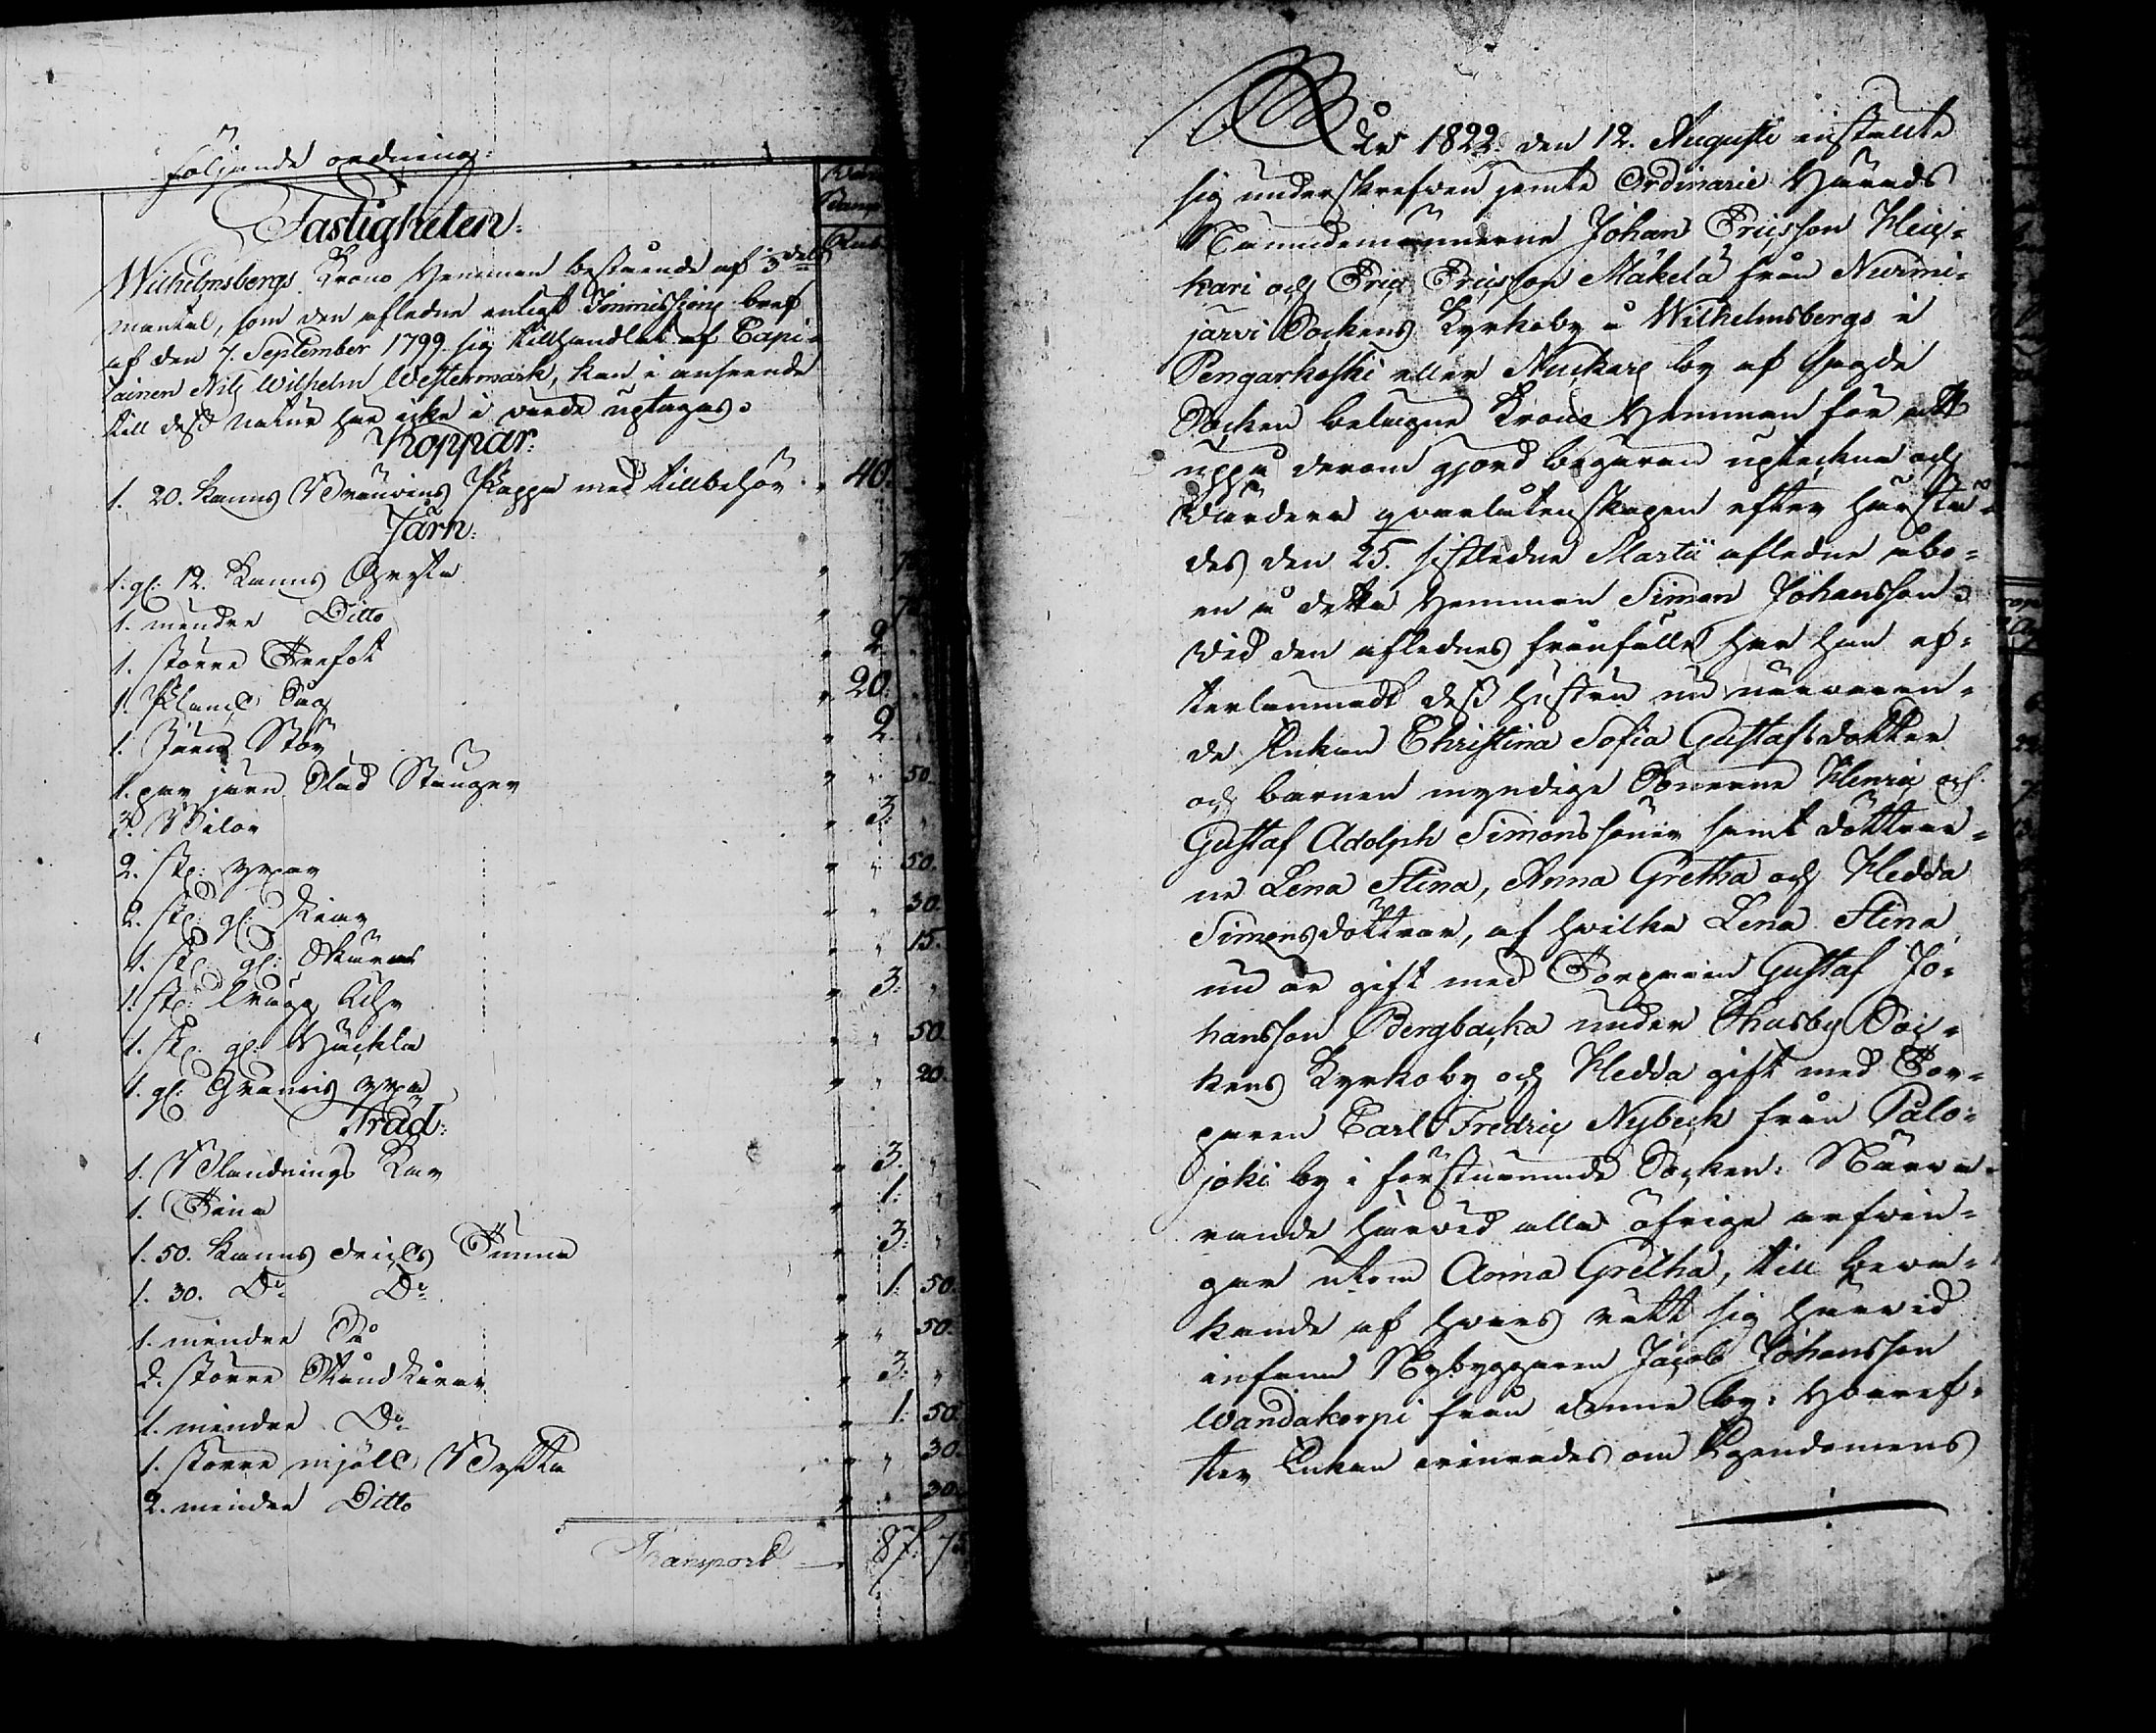 följande ordning:
Fastigheten:
Wilhelmsbergs Krono Hemman bestående af 3 del
mantal, som den afledne enligt Immissions bref
af den 7. September 1799 sig tillhandlat af Capi-
tainen Nils Wilhelm Westermark, kan i anseende
till dess natur här icke i värde uptagas.
Koppar:
1. 20. Kanns Bränvins Panna med tillbehör " 40.
Järn:
1. gl: 12. Kanns Gryta "
1. mindre Ditto "
1. större Trefot " 2. "
1. Planck Såg " 20. "
1. Järn Stör " 2. "
1. par järn Slad Stänger " " 50.
3. Bilor " 3. "
2. st: yxor " " 50.
2. st: gl: Liar " " 30.
4. st: gl: Skäror " " 15.
1. st: " 3. "
1. st: gl: Häckla " " 50.
1. gl: yxa " " 20.
Träd:
1. Blandnings Kar " 3. "
1. Tina " 1. "
1. 50. Kanns dricks Tunna " 3. "
1. 30. Do Do " 1. 50.
1. mindre Så " " 50.
2. större " 3. "
1. mindre Do " 1. 50.
1. större mjölk Bytta " " 30.
2. mindre Ditto " " 30.
Transport 87. 75
År 1822. den 12. Augusti instälte
sig underskrefven jemte Ordinarie Härads
Nämndemännerne Johan Ericsson Heic-
kari och Eric Ericsson Mäkelä från Nurmi-
järvi Sockens Kyrkoby å Wilhelmsbergs i
Pengarkoski eller Nuckars by af sagde
Socken belägne Krono Hemman för att
uppå derom gjord begäran upteckna och
värdera qvarlåtenskapen efter härstä-
des den 25. sistledne Martii afledne åbo-
en å detta Hemman Simon Johansson.
Vid den aflednes frånfälle har han ef-
terlemnadt dess hustru nu närvaran-
de Enkan Christina Sofia Gustafsdotter
och barnen myndige Sönerne Henric och
Gustaf Adolph Simonssöner samt döttrar-
ne Lena Stina, Anna Gretha och Hedda
Simonsdöttrar, af hvilka Lena Stina
nu är gift med Torparen Gustaf Jo-
hansson Bergbacka under Thusby Soc-
kens Kyrkoby och Hedda gift med Tor-
paren Carl Fredric Nybeck från Palo-
joki by i förstnämnde Socken: Närva-
rande härvid alla öfrige arfvin-
gar utom Anna Gretha, till beva-
kande af hvars rätt sig härvid
infann Nybyggaren Jacob Johansson
Wandakorpi från denne by: Hvaref-
ter Enkan erinrades om Egendomens